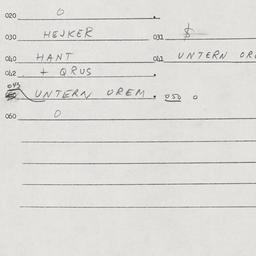 020 0
030 HEJKER 031 $
040 HANT 041 UNTERN ORE
042 + QRUS
043 UNTERN OREM 050 0
060 0